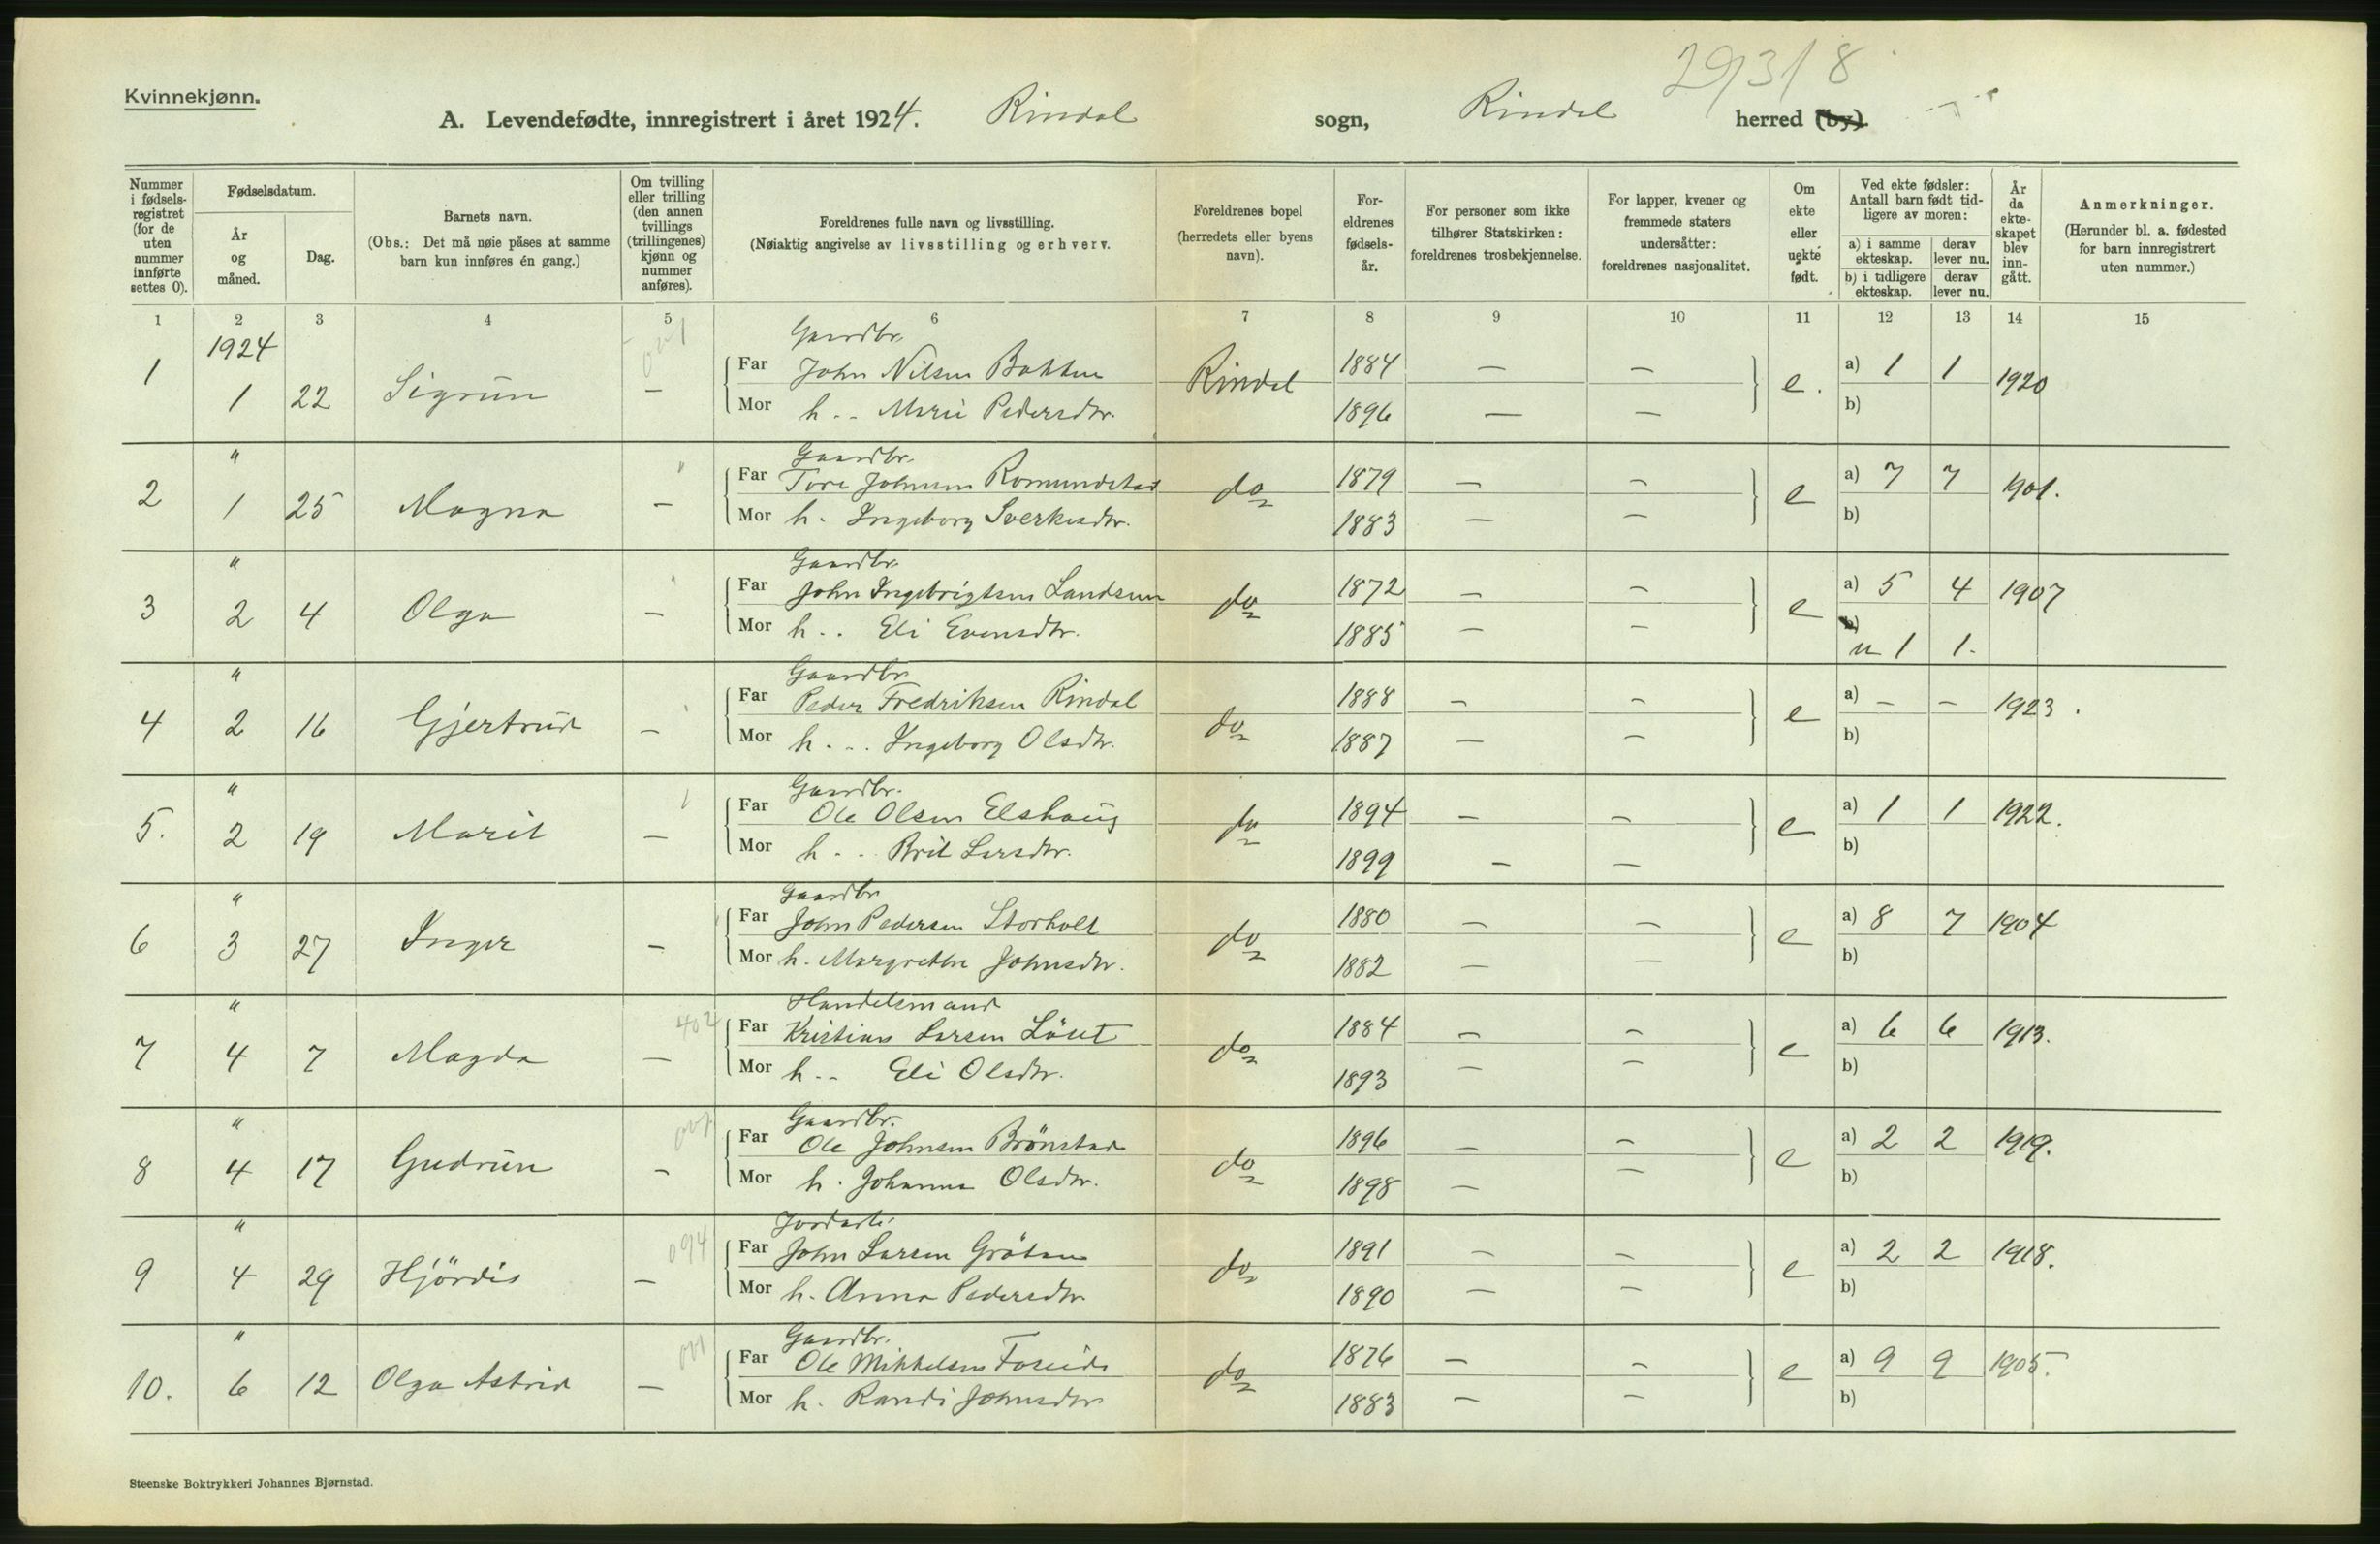 29/3/8
Kvinnekjønn.
A. Levendefødte, innregistrert i året 1924. Rindal sogn, Rindal herred (by).
Nummer i fødsels-registret (for de uten nummer innførte settes 0).
Fødselsdatum.
År og måned.
Dag.
Barnets navn.
(Obs.: Det må nøie påses at samme barn kun innføres én gang.)
Om tvilling eller trilling (den annen tvillings (trillingenes) kjønn og nummer anføres).
Foreldrenes fulle navn og livsstilling.
(Nøiaktig angivelse av livsstilling og erhverv.
Foreldrenes bopel (herredets eller byens navn).
For-eldrenes fødsels-år.
For personer som ikke tilhører Statskirken: foreldrenes trosbekjennelse.
For lapper, kvener og fremmede staters undersåtter: foreldrenes nasjonalitet.
Om ekte eller uekte født.
Ved ekte fødsler: Antall barn født tid-ligere av moren:
a) i samme ekteskap. derav lever nu.
b) i tidligere ekteskap. derav lever nu.
År da ekte-skapet blev inn-gått.
Anmerkninger.
(Herunder bl. a. fødested for barn innregistrert uten nummer.)
1 2 3 4 5 6 7 8 9 10 11 12 13 14 15
1924 Gaardbr.
1 1 22 Sigrun — Far John Nilsen Bakken Rindal 1884 — — e. a) 1 1 1920
Mor h. .. Marie Pedersdtr. 1896 — — b)
" Gaardbr.
2 1 25 Magna — Far Tore Johnsen Romundstad do 1879 — — e a) 7 7 1901.
Mor h. Ingeborg Sverkesdtr. 1883 — — b)
" Gaardbr.
3 2 4 Olga — Far John Ingebrigtsen Landsem do 1872 — — e a) 5 4 1907
Mor h. .. Eli Evensdtr. 1885 — — b)
u 1 1.
" Gaardbr.
4 2 16 Gjertrud — Far Peder Fredriksen Rindal do 1888 — — e a) — — 1923.
Mor h. .. Ingeborg Olsdtr. 1887 — — b)
" Gaardbr.
5. 2 19 Marit — Far Ole Olsen Elshaug do 1894 — — e a) 1 1 1922.
Mor h. .. Brit Larsdtr. 1899 — — b)
" Gaardbr.
6 3 27 Inger — Far John Pedersen Storholt do 1880 — — e a) 8 7 1904
Mor h. Margrethe Johnsdtr. 1882 — — b)
" Handelsmand
7 4 7 Magda — 402 Far Kristian Larsen Löset do 1884 — — e a) 6 6 1913.
Mor h. .. Eli Olsdtr. 1893 — — b)
" Gaardbr.
8 4 17 Gudrun — Far Ole Johnsen Brönstad do 1896 — — e a) 2 2 1919.
Mor h. Johanna Olsdtr. 1898 — — b)
"
9 4 29 Hjördis — 094 Far John Larsen Grötan do 1891 — — e a) 2 2 1918.
Mor h. Anna Pedersdtr. 1890 — — b)
" Gaardbr.
10. 6 12 Olga Astrid — 001 Far Ole Mikkelsen Foseide do 1876 — — e a) 9 9 1905.
Mor h. Randi Johnsdtr 1883 — — b)
Steenske Boktrykkeri Johannes Bjørnstad.